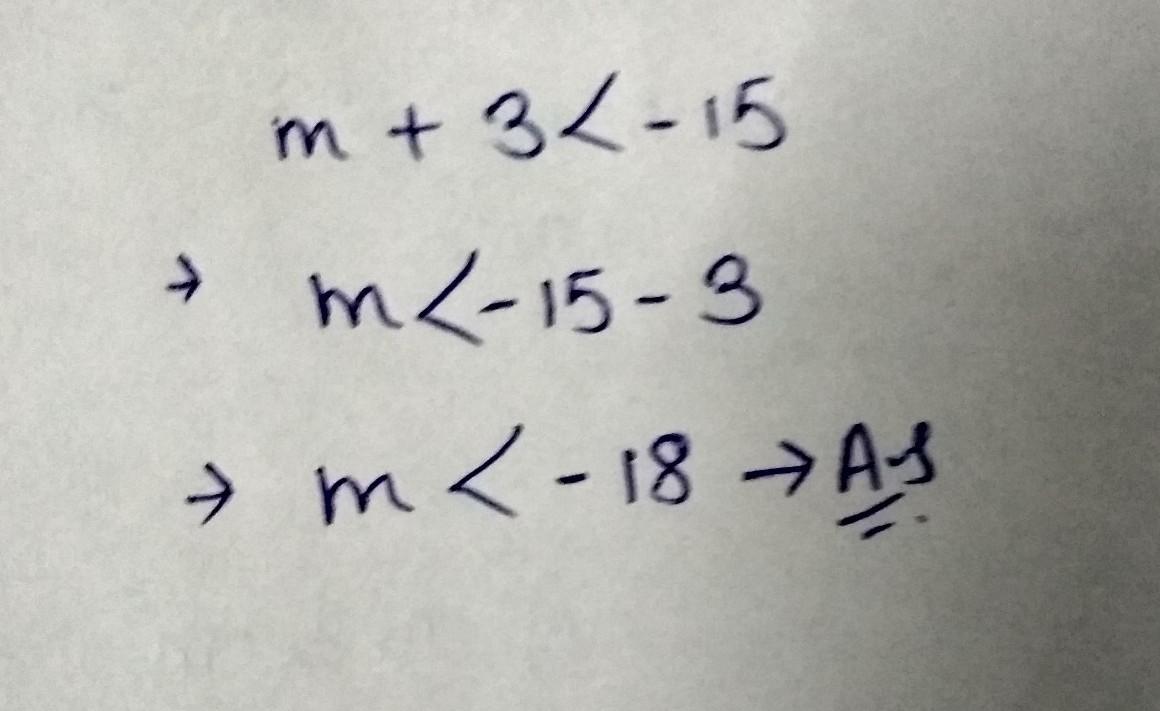 m + 3 < - 15
→ m < - 15 - 3
→ m < - 18 → Ans.